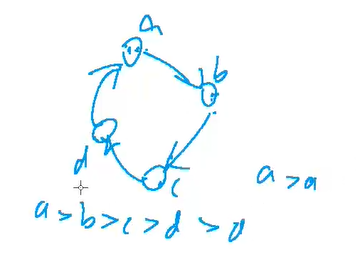 a
b
c
d
a > a
a > b > c > d > a